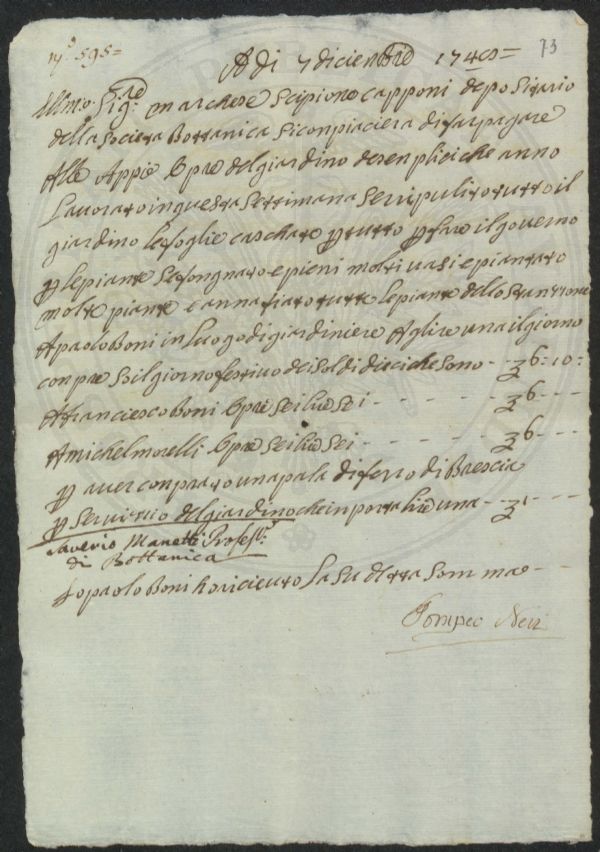 N.º 595=
73
A di 7 dicienbre 1740=
Ill.mo Sig.re marchese Scipione capponi depositario
della Societa Bottanica Siconpiaciera di far pagare
Alle Appie Opre del giardino de senplici che anno
Lavorato in questa Settimana Servi pulito tutto il
giardino le foglie caschate p tutto p fare il governo
p le piante Se fongnato e pieni molti vasi e piantato
molte piante e annafiato tutte le piante dello Stanzone
A paolo Boni in Luogo di giardiniere A glire una il giorno
con pre s il giorno festivo dei Soldi dieciche sono - - 6=10=
A franciesco Boni Opre Sei lire Sei - - - - 6 - - -
A michel morelli Opre Sei lire Sei - - - - 6 - - -
p aver conprato una pala di ferro di Brescia
p Servitio del giardino che inporta lire una - - 1 - - -
Saverio Manetti Profess.r
di Bottanica
Io paolo Boni ho riciento La Su detta Somma e -
Pompeo Neri